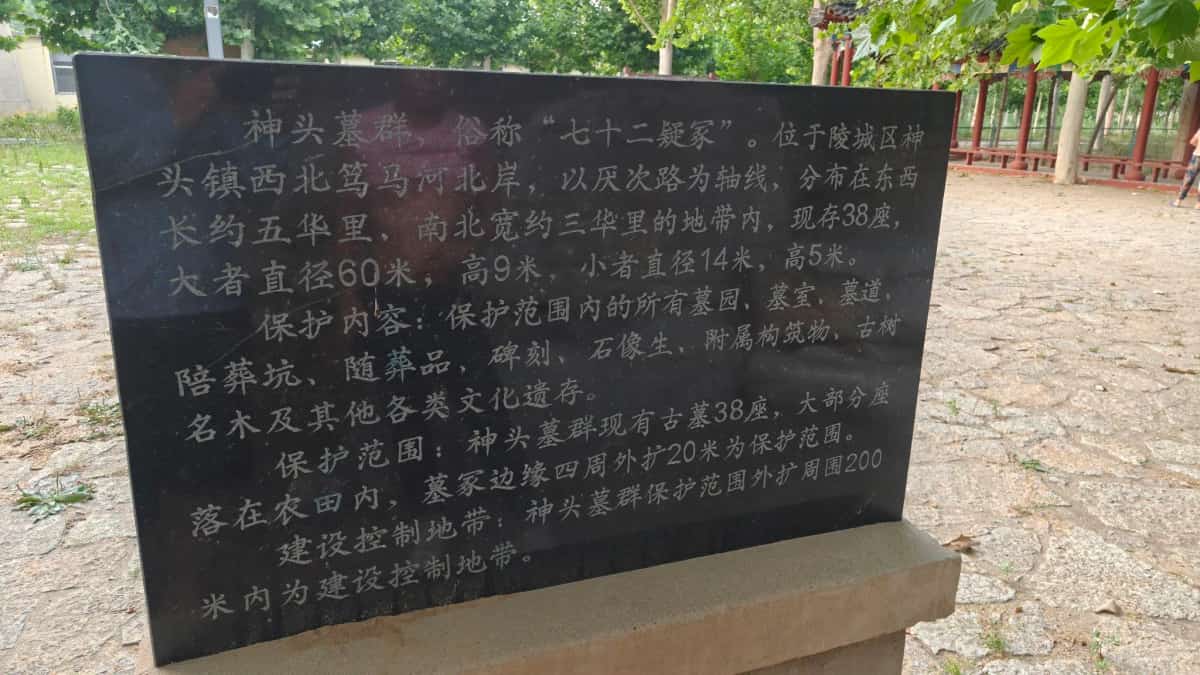 神头墓群，俗称“七十二疑冢”。位于陵城区神
头镇西北笃马河北岸，以厌次路为轴线，分布在东西
长约五华里、南北宽约三华里的地带内，现存38座，
大者直径60米，高9米，小者直径14米，高5米。
保护内容：保护范围内的所有墓园、墓室、墓道、
陪葬坑、随葬品、碑刻、石像生、附属构筑物、古树
名木及其他各类文化遗存。
保护范围：神头墓群现有古墓38座，大部分座
落在农田内，墓冢边缘四周外扩20米为保护范围。
建设控制地带：神头墓群保护范围外扩周围200
米内为建设控制地带。